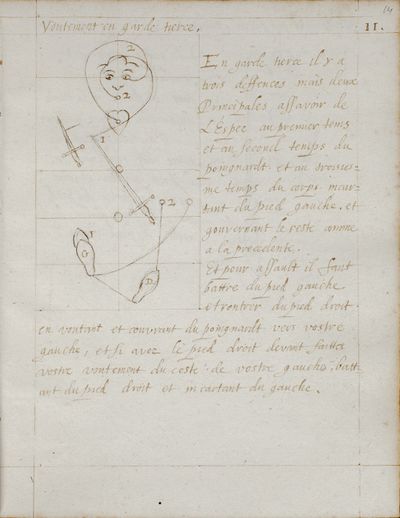 Voutement en garde tierce.
II.
En garde tierce il y a
trois deffences mais deux
Principales assavoir de
L'Espee au premier tems
et au second temps du
poingnardt et au troisies-
me temps du corps incar-
tant du pied gauche. et
gouvernant le reste comme
a la precedente.
Et pour assault il faut
battre du pied gauche
et rentrer du pied droit
en voutant et couvrant du poingnardt vers vostre
gauche, et si avez le pied droit devant faittes
vostre voutement du coste de vostre gauche batt-
ant du pied droit et incartant du gauche.
2
2
1
2
1
G
D